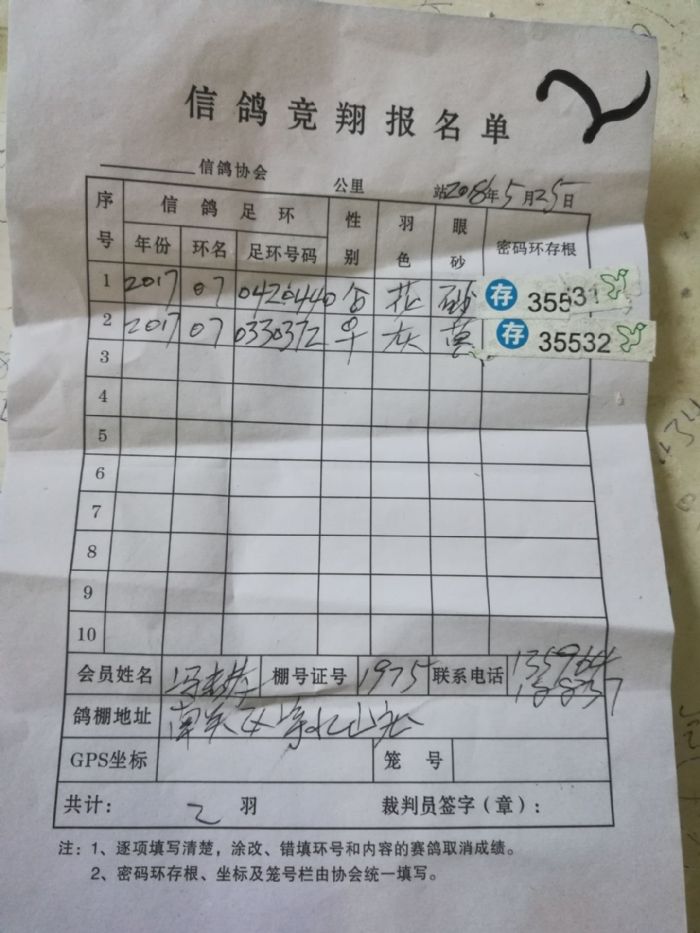 2
信鸽竞翔报名单
信鸽协会 公里 站2018年5月25日
序号 信鸽足环 性别 羽色 眼砂 密码环存根
年份 环名 足环号码
1 2017 07 0420440 花 砂 存 35531
2 2017 07 0330372 灰 黄 存 35532
3
4
5
6
7
8
9
10
会员姓名 冯 棚号证号 1975 联系电话 1359764
18837
鸽棚地址 南关区
GPS坐标 笼号
共计： 2 羽 裁判员签字（章）：
注：1、逐项填写清楚，涂改、错填环号和内容的赛鸽取消成绩。
2、密码环存根、坐标及笼号栏由协会统一填写。